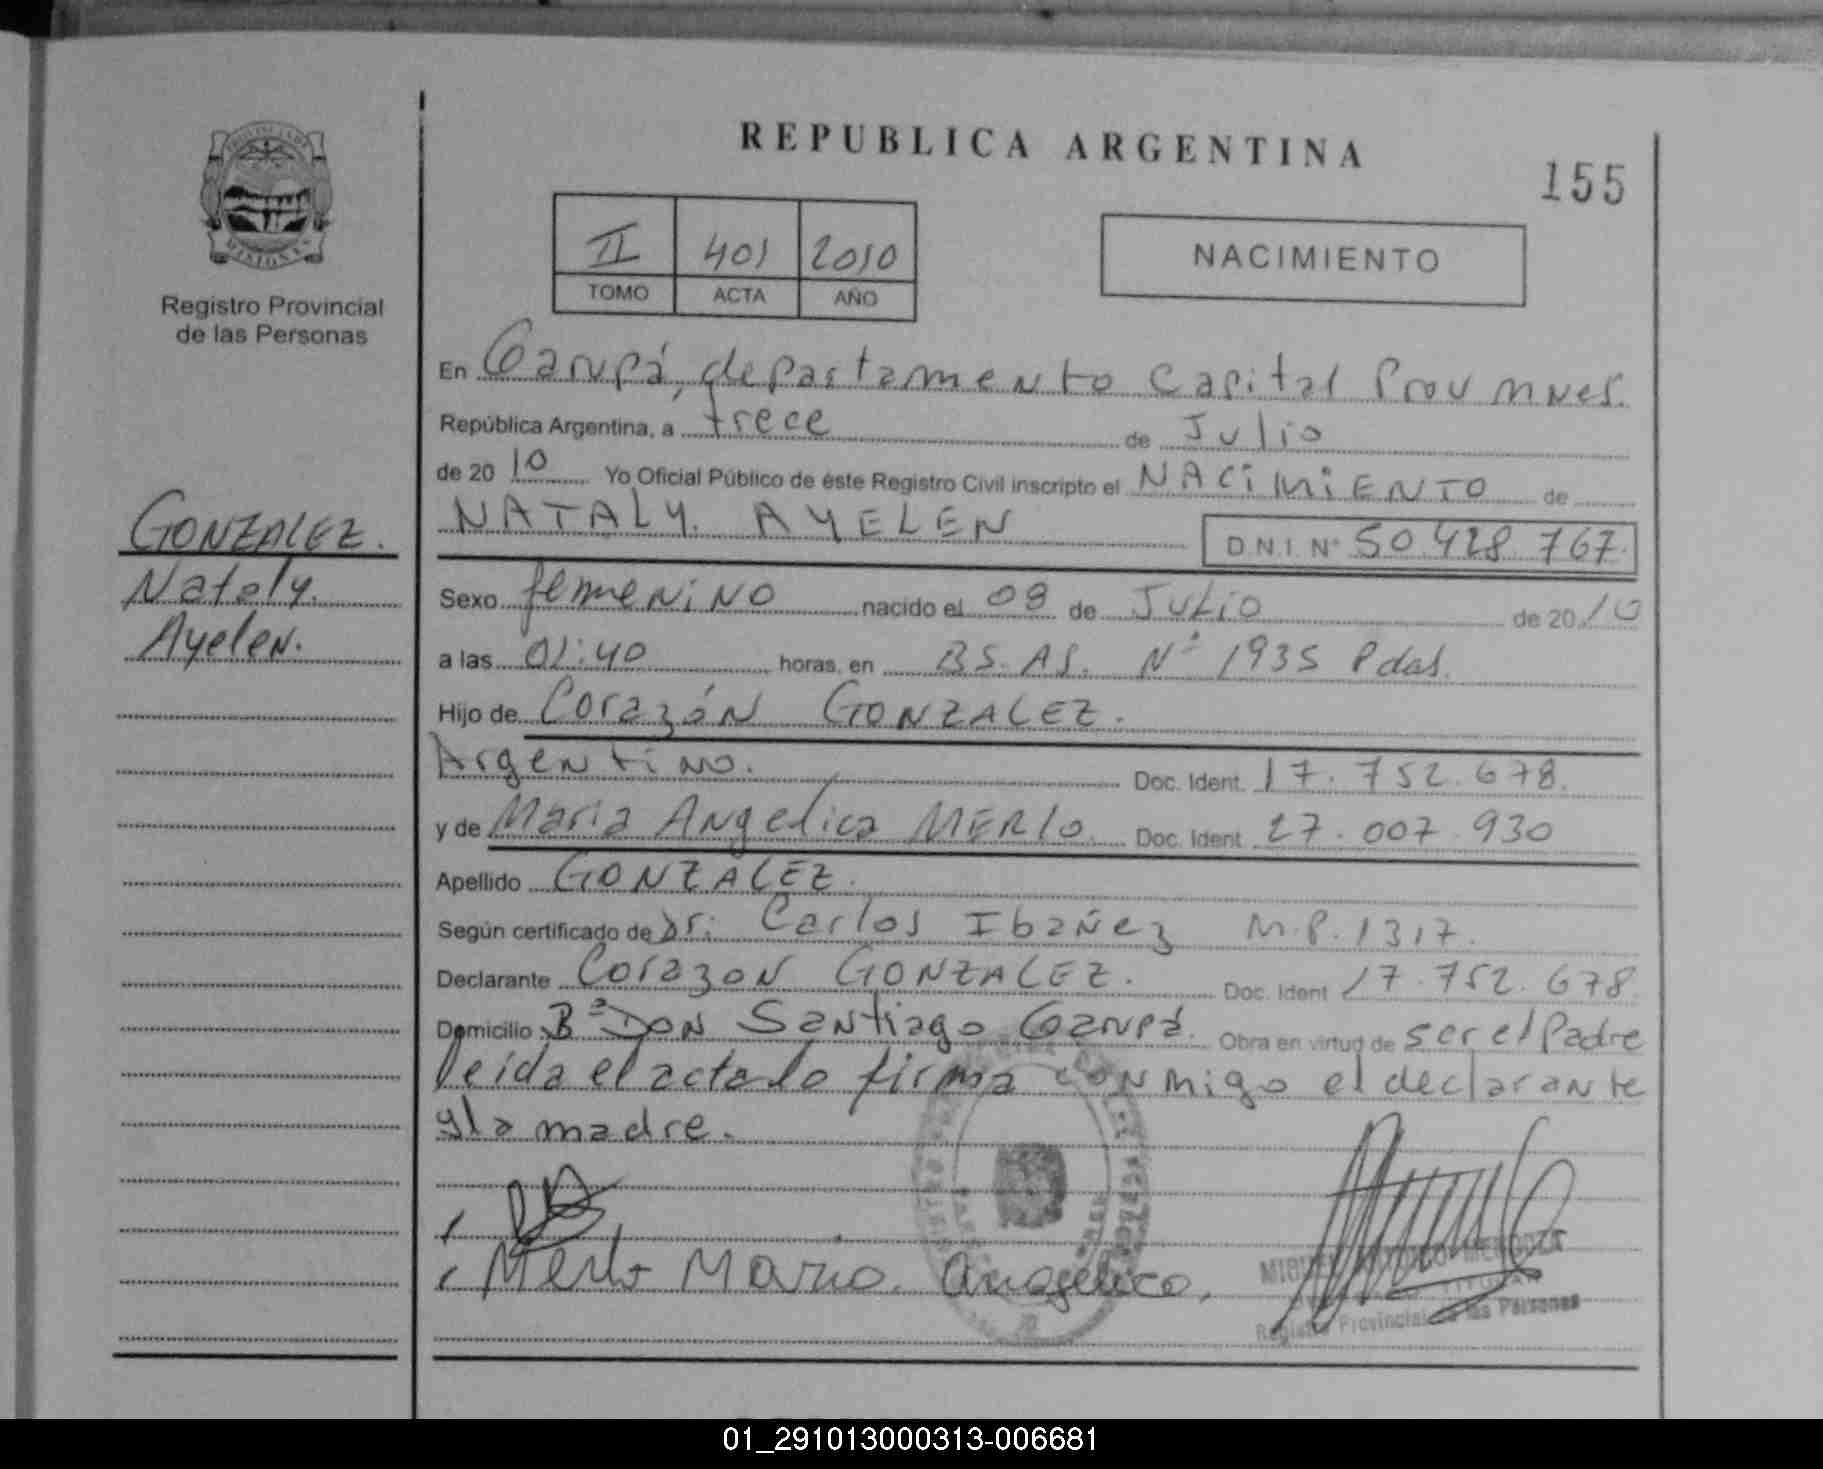 REPUBLICA ARGENTINA
155
II 401 2010
TOMO ACTA AÑO
NACIMIENTO
Registro Provincial
de las Personas
GONZALEZ.
Nataly.
Ayelen.
En Garupá, departamento Capital Prov Mnes.
República Argentina, a trece de Julio
de 20 10 Yo Oficial Público de éste Registro Civil inscripto el NACIMIENTO de
NATALY. AYELEN D.N.I. Nº 50.428.767.
Sexo femenino nacido el 08 de Julio de 20 10
a las 01:40 horas, en BS. AS. Nº 1935 Pdas.
Hijo de Corazón GONZALEZ.
Argentino. Doc. Ident. 17.752.678.
y de Maria Angelica MERLO. Doc. Ident. 27.007.930
Apellido GONZALEZ.
Según certificado de Dr: Carlos Ibañez M.P. 1317.
Declarante Corazon GONZALEZ. Doc. Ident 17.752.678
Domicilio Bº Don Santiago Garupá. Obra en virtud de ser el Padre
leida el acta la firma conmigo el declarante
y la madre.
Merlo Maria. Angelica.
MENDOZA
TITULAR
Registro Provincial de las Personas
01_291013000313-006681